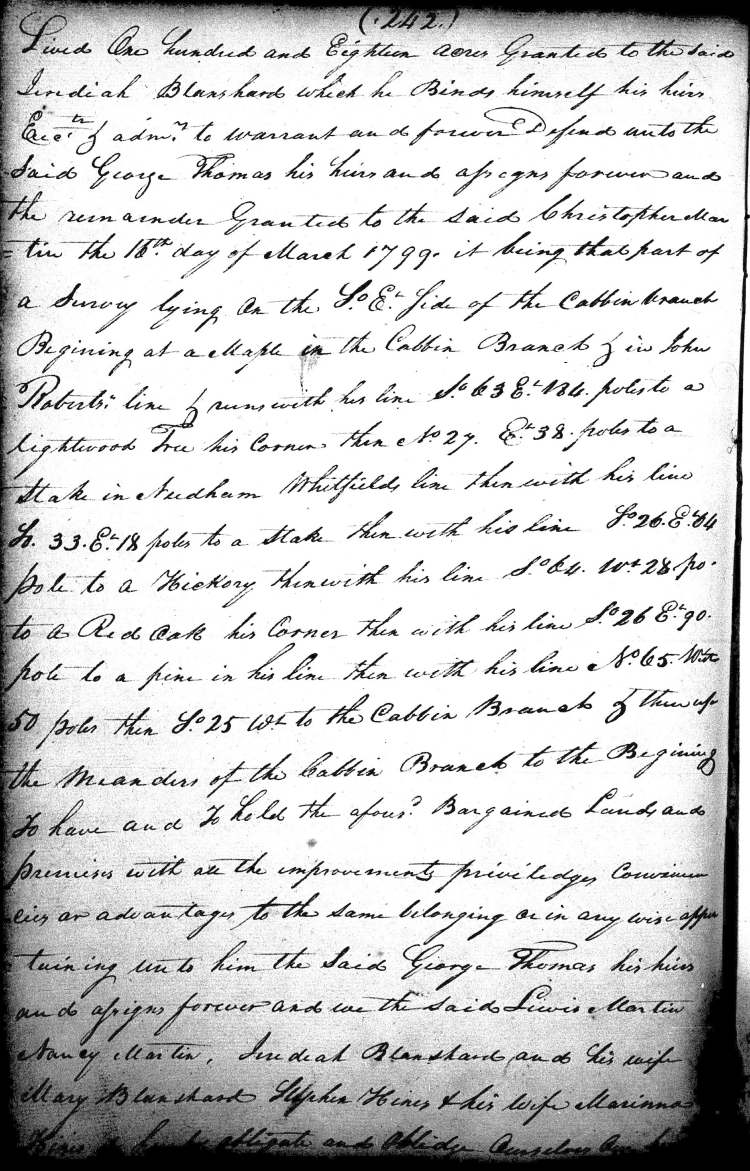 (242.)
Lived One hundred and Eighteen acres Granted to the said
Jerediah Blanshard which he Binds himself his heirs
Exec.trs & adm.rs to warrant and forever Defend unto the
Said George Thomas his heirs and assigns forever and
the remainder Granted to the said Christopher Mar
= tin the 16th day of March 1799. it being that part of
a Survey lying on the So. Et. Side of the Cabbin branch
Begining at a Maple in the Cabbin Branch & in John
Roberts's line & runs with his line So. 63 Et. 184. poles to a
lightwood Tree his Corner then No 27. Et. 38. poles to a
Stake in Needham Whitfields line then with his line
So. 33. Et. 18 poles to a Stake then with his line So. 26. Et. 84
pole to a Hickory then with his line So. 64. Wt. 28. po.
to a Red Oak his Corner then with his line So. 26 Et. 90.
pole to a pine in his line then with his line No. 65. Wt.
50 poles then So. 25 Wt. to the Cabbin Branch & then up
the Meanders of the Cabbin Branch to the Begining
To have and To hold the afours.d Bargained Lands and
premises with all the improvements priviledges Convinien
cies or advantages to the same belonging or in any wise appe
= taining unto him the Said George Thomas his heirs
and assigns forever and we the said Lewis Martin
Nancy Martin, Jerediah Blanshard and his wife
Mary Blanshard Stephen Hines & his wife Marinna
Hines obligate and Oblidge Ourselves